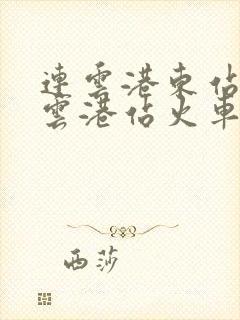 連雲港東佔
雲港佔火車
西莎